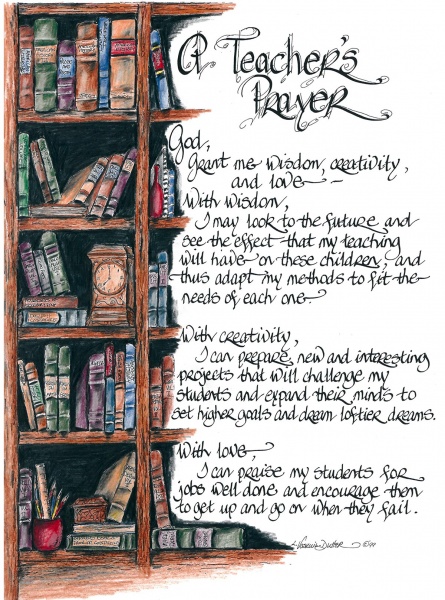 A Teacher's
Prayer
God,
Grant me wisdom, creativity,
and love –
With wisdom,
I may look to the future and
see the effect that my teaching
will have on these children, and
thus adapt my methods to fit the
needs of each one.
With creativity,
I can prepare new and interesting
projects that will challenge my
students and expand their minds to
set higher goals and dream loftier dreams.
With love,
I can praise my students for
jobs well done and encourage them
to get up and go on when they fail.